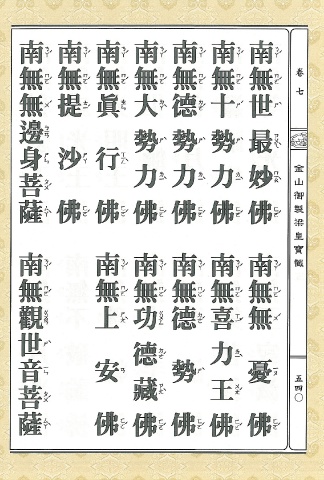 卷七
金山御製梁皇寶懺
五四〇
南無世最妙佛
南無無憂佛
南無十勢力佛
南無喜力王佛
南無德勢力佛
南無德勢佛
南無大勢力佛
南無功德藏佛
南無眞行佛
南無上安佛
南無提沙佛
南無無邊身菩薩
南無觀世音菩薩